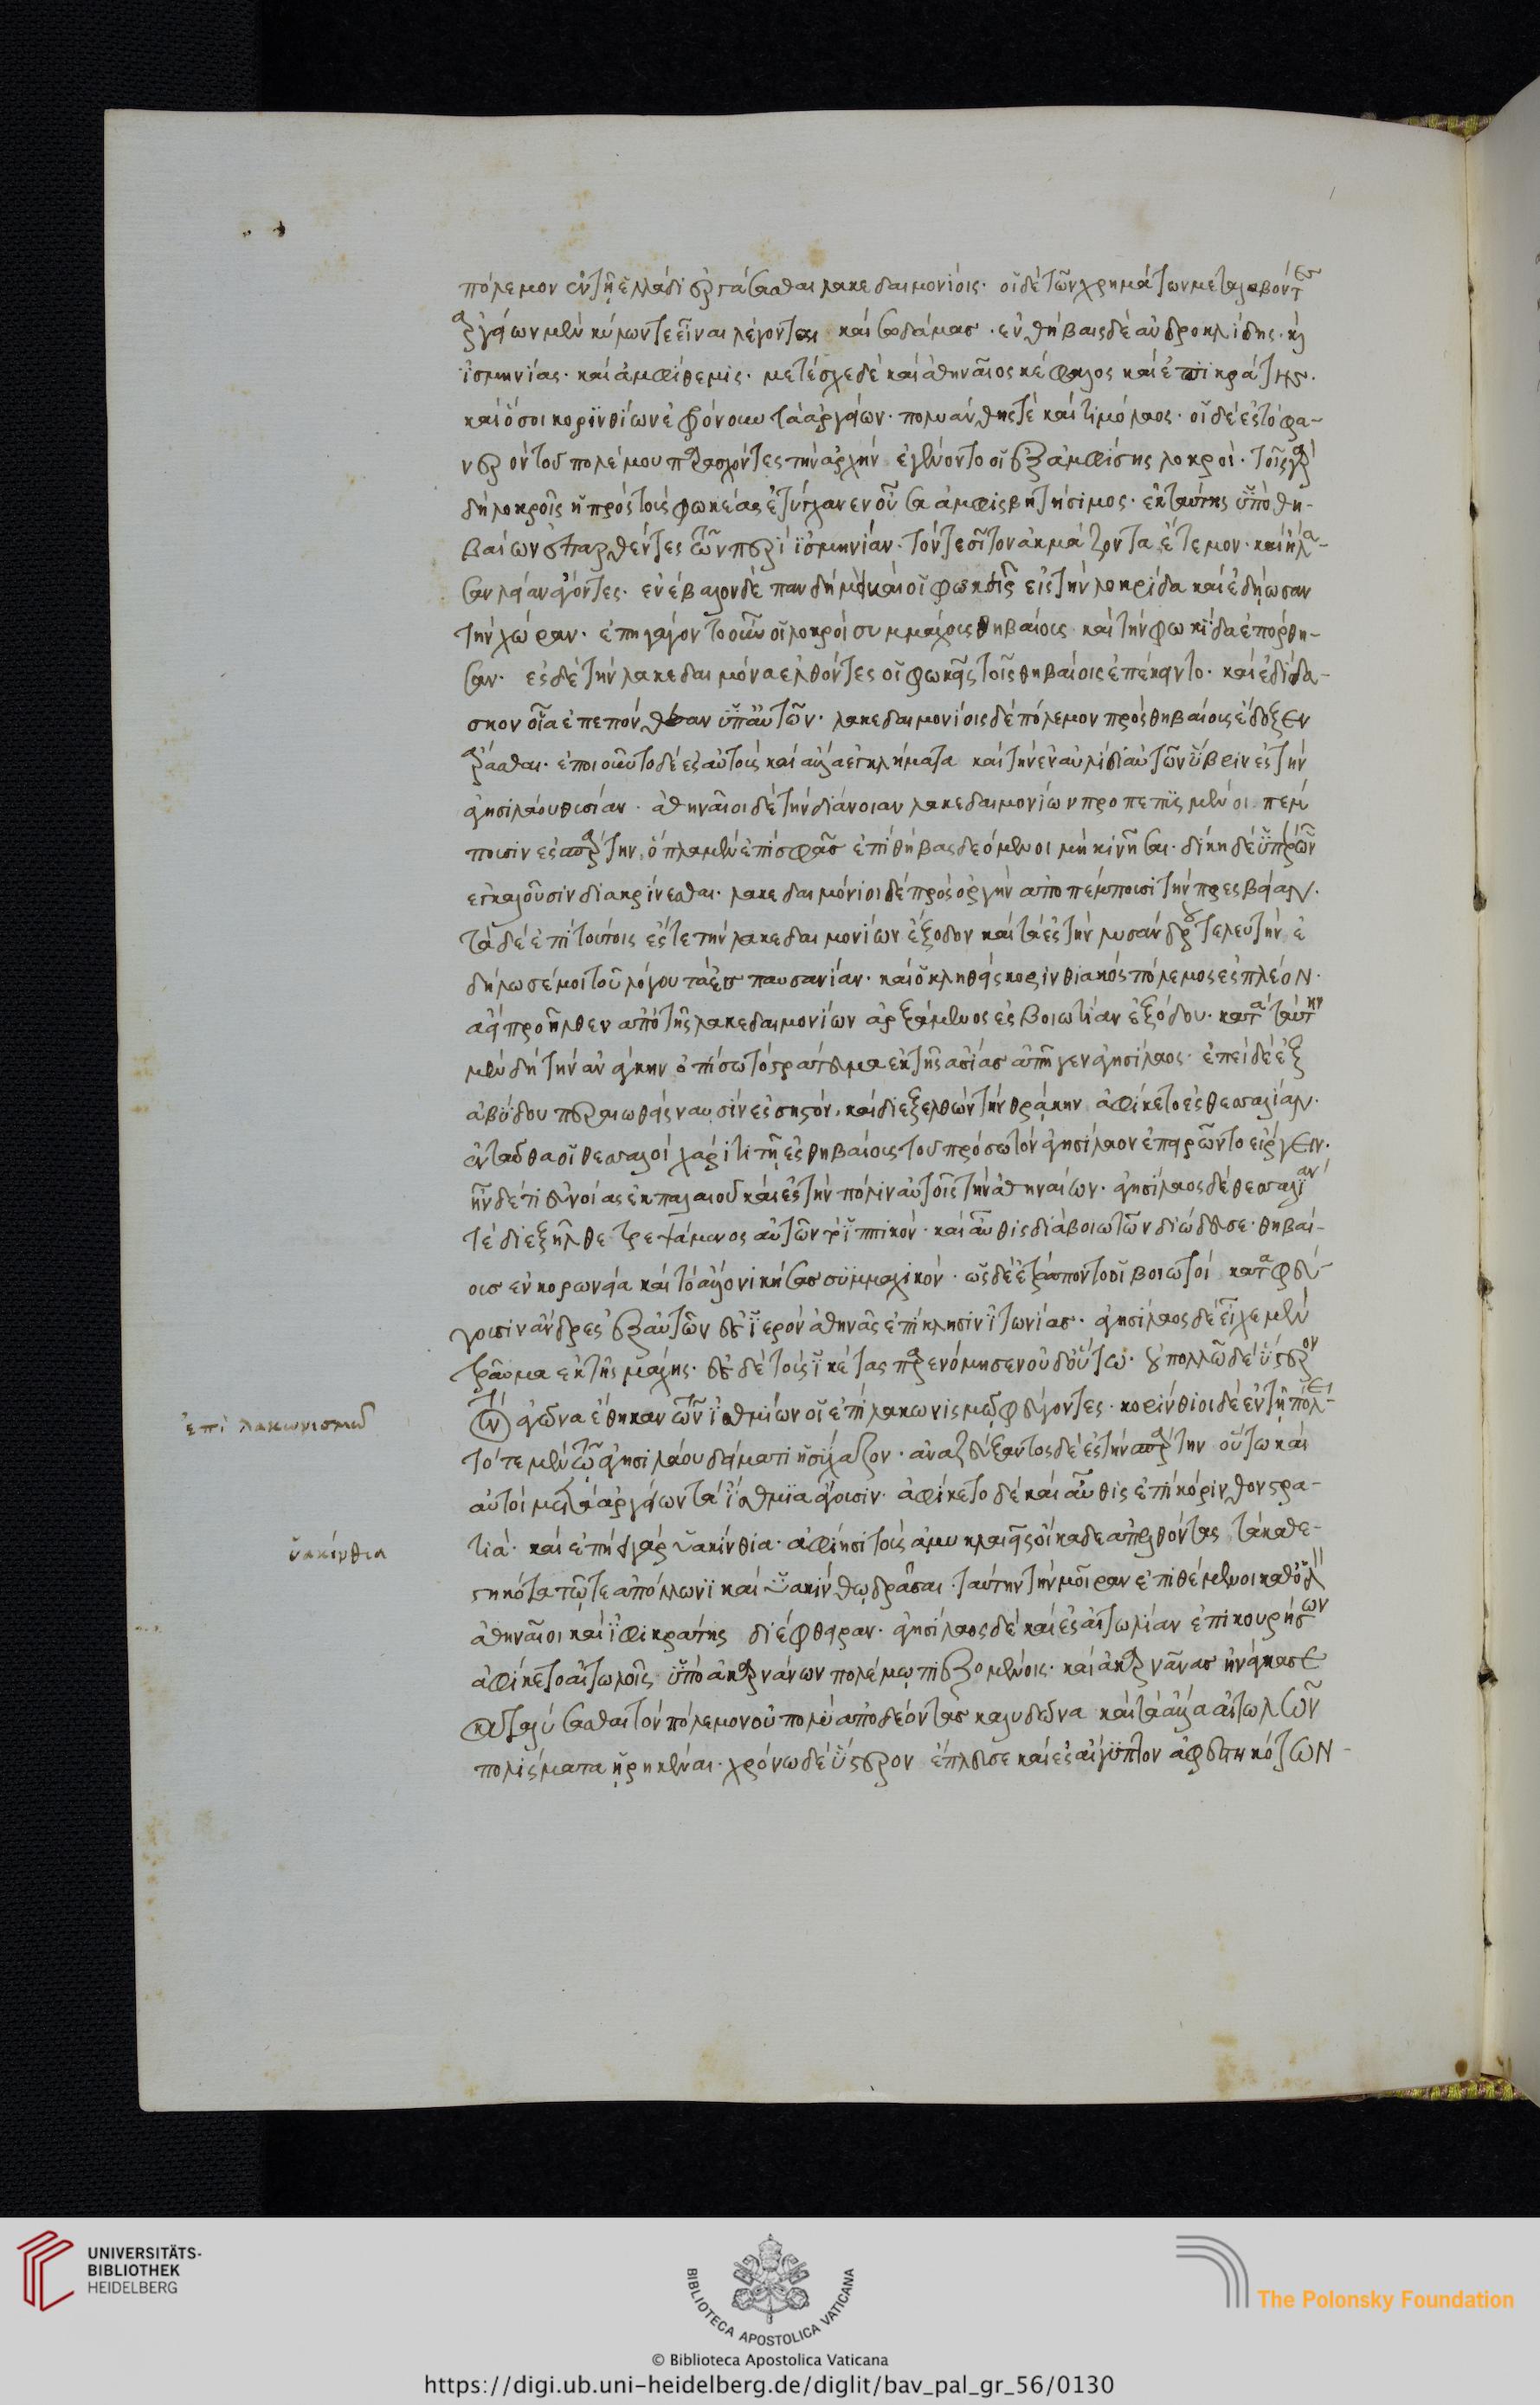 πόλεμον ἐν τῆ ἑλλάδι ἐργάσασθαι λακεδαιμονίοις· οἱ δὲ τῶν χρημάτων μεταλαβόντες
ἀργείων μὲν κύλων τε εἶναι λέγονται καὶ σωδάμας· ἐν θήβαις δὲ ἀνδροκλίδης· καὶ
ἰσμηνίας· καὶ ἀμφίθεμις· μετέσχε δὲ καὶ ἀθηναῖος κέφαλος καὶ ἐπικράτης·
καὶ ὅσοι κορινθίων ἐφρόνουν τὰ ἀργείων· πολυάνθης τὲ καὶ τιμόλαος· οἱ δὲ ἐς τὸ φα-
νερὸν τοῦ πολέμου παρασχόντες τὴν ἀρχὴν ἐγένοντο οἱ ἐξ ἀμφίσης λοκροί· τοῖς γὰρ
δὴ λοκροῖς ἡ πρὸς τοὺς φωκέας ἐτύγχανεν οὖσα ἀμφισβητήσιμος· ἐκ ταύτης ὑπὸ θη-
βαίων ἐπαρθέντες τῶν περὶ ἰσμηνίαν· τόν τε σῖτον ἀκμάζοντα ἔτεμον· καὶ ἤλα-
σαν λείαν ἄγοντες· ἐνέβαλον δὲ πανδημεὶ καὶ οἱ φωκεῖς εἰς τὴν λοκρίδα καὶ ἐδήωσαν
τὴν χώραν· ἐπηγάγοντο οὖν οἱ λοκροὶ συμμάχους θηβαίους καὶ τὴν φωκίδα ἐπόρθη-
σαν· ἐς δὲ τὴν λακεδαιμόνα ἐλθόντες οἱ φωκεῖς τοῖς θηβαίοις ἐπέκειντο· καὶ ἐδίδα-
σκον οἷα ἐπεπόνθεσαν ὑπ' αὐτῶν· λακεδαιμονίοις δὲ πόλεμον πρὸς θηβαίους ἔδοξεν
ἄρασθαι· ἐποιοῦντο δὲ ἐς αὐτοὺς καὶ ἄλλα ἐγκλήματα καὶ τὴν ἐν αὐλίδι αὐτῶν ὕβριν ἐς τὴν
ἀγησιλάου θυσίαν· ἀθηναῖοι δὲ τὴν διάνοιαν λακεδαιμονίων προπετῆς μένοι πέμ
πουσιν ἐς σπάρτην, ὅπλα μὲν ἐπὶ σφᾶς ἐπὶ θήβας δεόμενοι μὴ κινῆσαι· δίκη δὲ ὑπὲρ ὧν
ἐγκαλοῦσιν διακρίνεσθαι· λακεδαιμόνιοι δὲ πρὸς ὀργὴν ἀποπέμπουσι τὴν πρεσβείαν·
τὰ δὲ ἐπὶ τούτοις ἔς τε τὴν λακεδαιμονίων ἔξοδον καὶ τὰ ἐς τὴν λυσάνδρου τελευτὴν ἐ
δήλωσέ μοι τοῦ λόγου τὰ ἐς παυσανίαν· καὶ ὁ κληθεὶς κορινθιακὸς πόλεμος ἐς πλέον·
ἀεὶ προῆλθεν ἀπὸ τῆς λακεδαιμονίων ἀρξάμενος ἐς βοιωτίαν ἐξόδου· κατὰ ταύτην
μὲν δὴ τὴν ἀνάγκην ὀπίσω τὸ στράτευμα ἐκ τῆς ἀσίας ἀπῆγεν ἀγησίλαος· ἐπεὶ δὲ ἐξ
ἀβύδου περαιωθεὶς ναυσὶν ἐς σηστόν, καὶ διεξελθὼν τὴν θράκην ἀφίκετο ἐς θεσσαλίαν·
ἐνταῦθα οἱ θεσσαλοὶ χάριτι τῆ ἐς θηβαίους τοῦ πρόσω τὸν ἀγησίλαον ἐπειρῶντο εἴργειν·
ἦν δέ τι εὐνοίας ἐκ παλαιοῦ καὶ ἐς τὴν πόλιν αὐτοῖς τὴν ἀθηναίων· ἀγησίλαος δὲ θεσσαλίαν
τὲ διεξῆλθε τρεψάμενος αὐτῶν τὸ ἱππικόν· καὶ αὖθις διὰ βοιωτῶν διώδευσε· θηβαί-
ους ἐν κορωνεία καὶ τὸ ἄλλο νικήσας συμμαχικόν· ὡς δὲ ἐτράποντο οἱ βοιωτοί καταφεύ-
γουσιν ἄνδρες ἐξ αὐτῶν ἐς ἱερὸν ἀθηνᾶς ἐπίκλησιν ἰτωνίας· ἀγησίλαος δὲ εἶχε μὲν
τραῦμα ἐκ τῆς μάχης· ἐς δὲ τοὺς ἱκέτας παρενόμησεν οὐδ' οὕτω· οὐ πολλῶ δὲ ὕστερον
τὸν ἀγῶνα ἔθηκαν τῶν ἰσθμίων οἱ ἐπὶ λακωνισμῷ φεύγοντες· κορίνθιοι δὲ ἐν τῆ πόλει
τότε μὲν τῶ ἀγησιλάου δείματι ἡσύχαζον· ἀναζεύξαντος δὲ ἐς τὴν σπάρτην οὕτω καὶ
αὐτοὶ μετὰ ἀργείων τὰ ἴσθμια ἄγουσιν· ἀφίκετο δὲ καὶ αὖθις ἐπὶ κόρινθον στρα-
τιᾶ· καὶ ἐπήει γὰρ ὑακίνθια· ἀφίησι τοὺς ἀμυκλαιεῖς οἴκαδε ἀπελθόντας τὰ καθε-
στηκότα τῶ τε ἀπόλλωνι καὶ ὑακίνθῳ δρᾶσαι· ταύτην τὴν μοῖραν ἐπιθέμενοι καθ' ὁδὸν
ἀθηναῖοι καὶ ἰφικράτης διέφθειραν· ἀγησίλαος δὲ καὶ ἐς αἰτωλίαν ἐπικουρήσων
ἀφίκετο αἰτωλοῖς ὑπὸ ἀκαρνάνων πολέμῳ πιεζομένοις· καὶ ἀκαρνᾶνας ἠνάγκασε
καταλύσασθαι τὸν πόλεμον οὐ πολὺ ἀποδέοντας καλυδῶνα καὶ τὰ ἄλλα αἰτωλῶν
πολίσματα ᾑρηκέναι· χρόνω δὲ ὕστερον ἔπλευσε καὶ ἐς αἴγυπτον ἀφεστηκότων
ἐπὶ λακωνισμῶ
ὑακίνθια
UNIVERSITÄTS-
BIBLIOTHEK
HEIDELBERG
BIBLIOTECA APOSTOLICA VATICANA
© Biblioteca Apostolica Vaticana
The Polonsky Foundation
https://digi.ub.uni-heidelberg.de/diglit/bav_pal_gr_56/0130